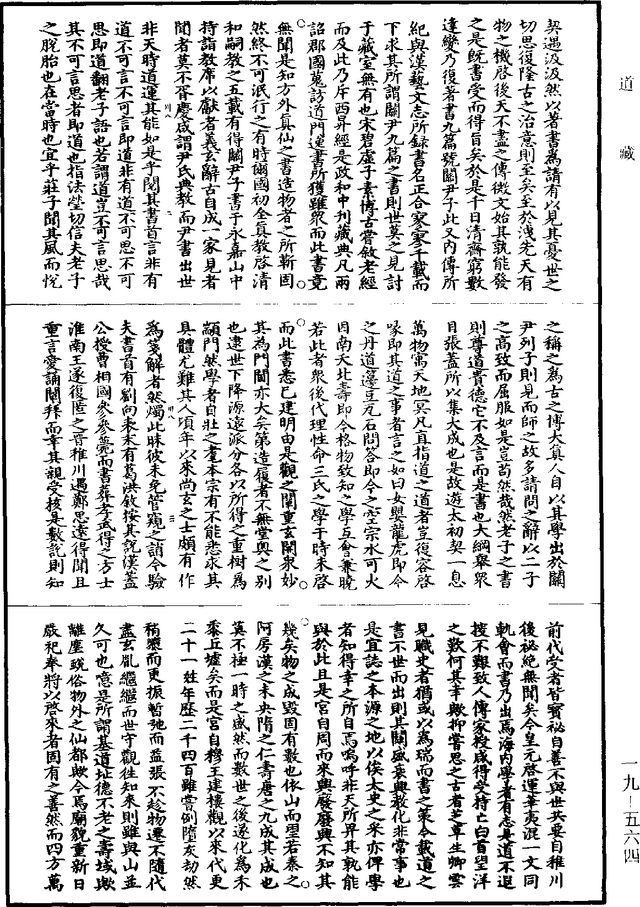 道藏
契遇汲汲然以著書為請有以見其憂世之
切思復隆古之治意則至矣至於洩先天有
物之機啓後天不盡之傳微文始其孰能發
之是旣書受而得旨矣於是千日清齋窮數
達變乃復著書九篇號關尹子此又內傳所
紀與漢藝文志所錄書名正合寥寥千載而
下求其所謂關尹九篇之書則世莫之見討
于藏室無有也宋碧虛子素博古嘗敘老經
而及此乃斥西昇經是政和中刊藏典凡兩
詔郡國蒐訪道門遺書所獲雖衆而此書竟
無聞是知方外真仙之書造物者之所靳固
然終不可泯行之有時爾國初全真教啓清
和嗣教之五載有得關尹子書于永嘉山中
持詣教席以獻者義玄辭古自成一家見者
聞者莫不胥慶咸謂尹氏典教而尹書出世
非天時道運其能如是乎閱其書首言非有
道不可言不可言即道非有道不可思不可
思即道翻老子語也若謂道豈不可言思哉
其不可言思者即道也指法瑩切信夫老子
之脫胎也在當時也宜乎莊子聞其風而悅
之稱之為古之博大真人自以其學出於關
尹列子則見而師之故多請問之辭以二子
之高致而屈服如是豈苟然哉然老子之書
則尊道貴德它不及言而是書也大綱舉衆
目張蓋所以集大成也是故遊太初契一息
萬物寓天地冥凡直指道之道者豈復容啓
喙即其道之事者言之如曰女與龍虎即今
之丹道籩豆瓦石問答即今之空宗水可火
因南夭北壽即今格物致知之學互會兼曉
若此者衆後代理性命三氏之學于時未啓
而此書悉已建明由是觀之闡重玄闢衆妙
其為門閫亦大矣第造履者不無堂奧之別
也逮世下降源遠派分各以所得之重樹為
顓門然學者自壯之耄本宗有不能悉求其
具體尤難其人頃年以來尚玄之士頗有作
為箋解者然燭此昧彼未免管窺之誚今驗
夫書首有劉向表末有葛洪敘按其說漢蓋
公授曹相國參參薨而書葬孝武得之方士
淮南王遂復匿之晉稚川遇鄭思遠得聞且
重言愛誦關拜而幸其親受核是數說則知
前代受者皆寶祕自善不與世共要自稚川
後祕絶無聞矣今皇元啓運華夷混一文同
軌會而書乃出焉海內學者有志是道不遐
搜不艱致人傳家授咸得受持亡白首望洋
之歎何其幸歟抑嘗思之古者芝草生卿雲
見職史者猶或以為瑞而書之策今載道之
書不世而出則其關風衰興教化非常事也
是宜誌之本源之地以俟太史之采亦俾學
者知得幸之所自焉嗚呼非天所畀其孰能
與於此且是宮自周而來興廢廢興不知其
幾矣物之成毀固有數也依山而望若秦之
阿房漢之未央隋之仁壽唐之九成其成也
莫不極一時之盛然而數世之後遂化為禾
黍丘墟矣而是宮自穆王建樓觀以來代更
二十一姓年歷二千四百雖嘗例隨灰劫然
稍壓而更振暫弛而益張不趁物遷不隨代
盡玄胤繼繼而世守觀往知來則雖與山並
久可也噫是所謂基道址德不老之壽域歟
離塵噦俗物外之仙都歟今焉廟貌重新日
嚴祀奉將以啓來者固有之善然而四方萬
一九—五六四